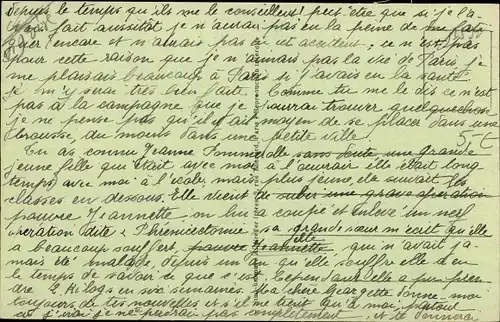 Depuis le temps qu'ils me le conseillent! peut-être que si je l'a-
vais fait aussitôt je n'aurai pas eu la peine de me
encore et n'aurais pas eu cet accident, ce n'est pas
pour cette raison que je n'aimais pas la vie de Paris, je
me plaisais beaucoup à Paris si j'avais eu la santé
je m'y serai très bien faite. Comme tu me le dis ce n'est
pas à la campagne que je pourrai trouver quelque chose
je ne pense pas qu'il y ait moyen de se placer dans une
brousse, du moins dans une petite ville.
Tu as connu Jeanne sans doute une grande
jeune fille qui était avec moi à l'ouvroir elle était long
temps avec moi à l'école, mais plus jeune elle suivait les
classes en dessous. Elle vient de subir une grave opération
pauvre Jeannette on lui a coupé et enlevé un nerf
opération dite sa grande sœur m'écrit qu'elle
a beaucoup souffert, pauvre Jeannette elle qui n'avait ja-
mais été malade, depuis un an qu'elle souffre elle a eu
le temps de savoir ce que c'est. Cependant elle a pu pren-
dre 6 Kilogs en six semaines. Ma chère Georgette donne-moi
toujours de tes nouvelles et s'il ne tient qu'à moi
va je n'irai pas complètement et te donnerai